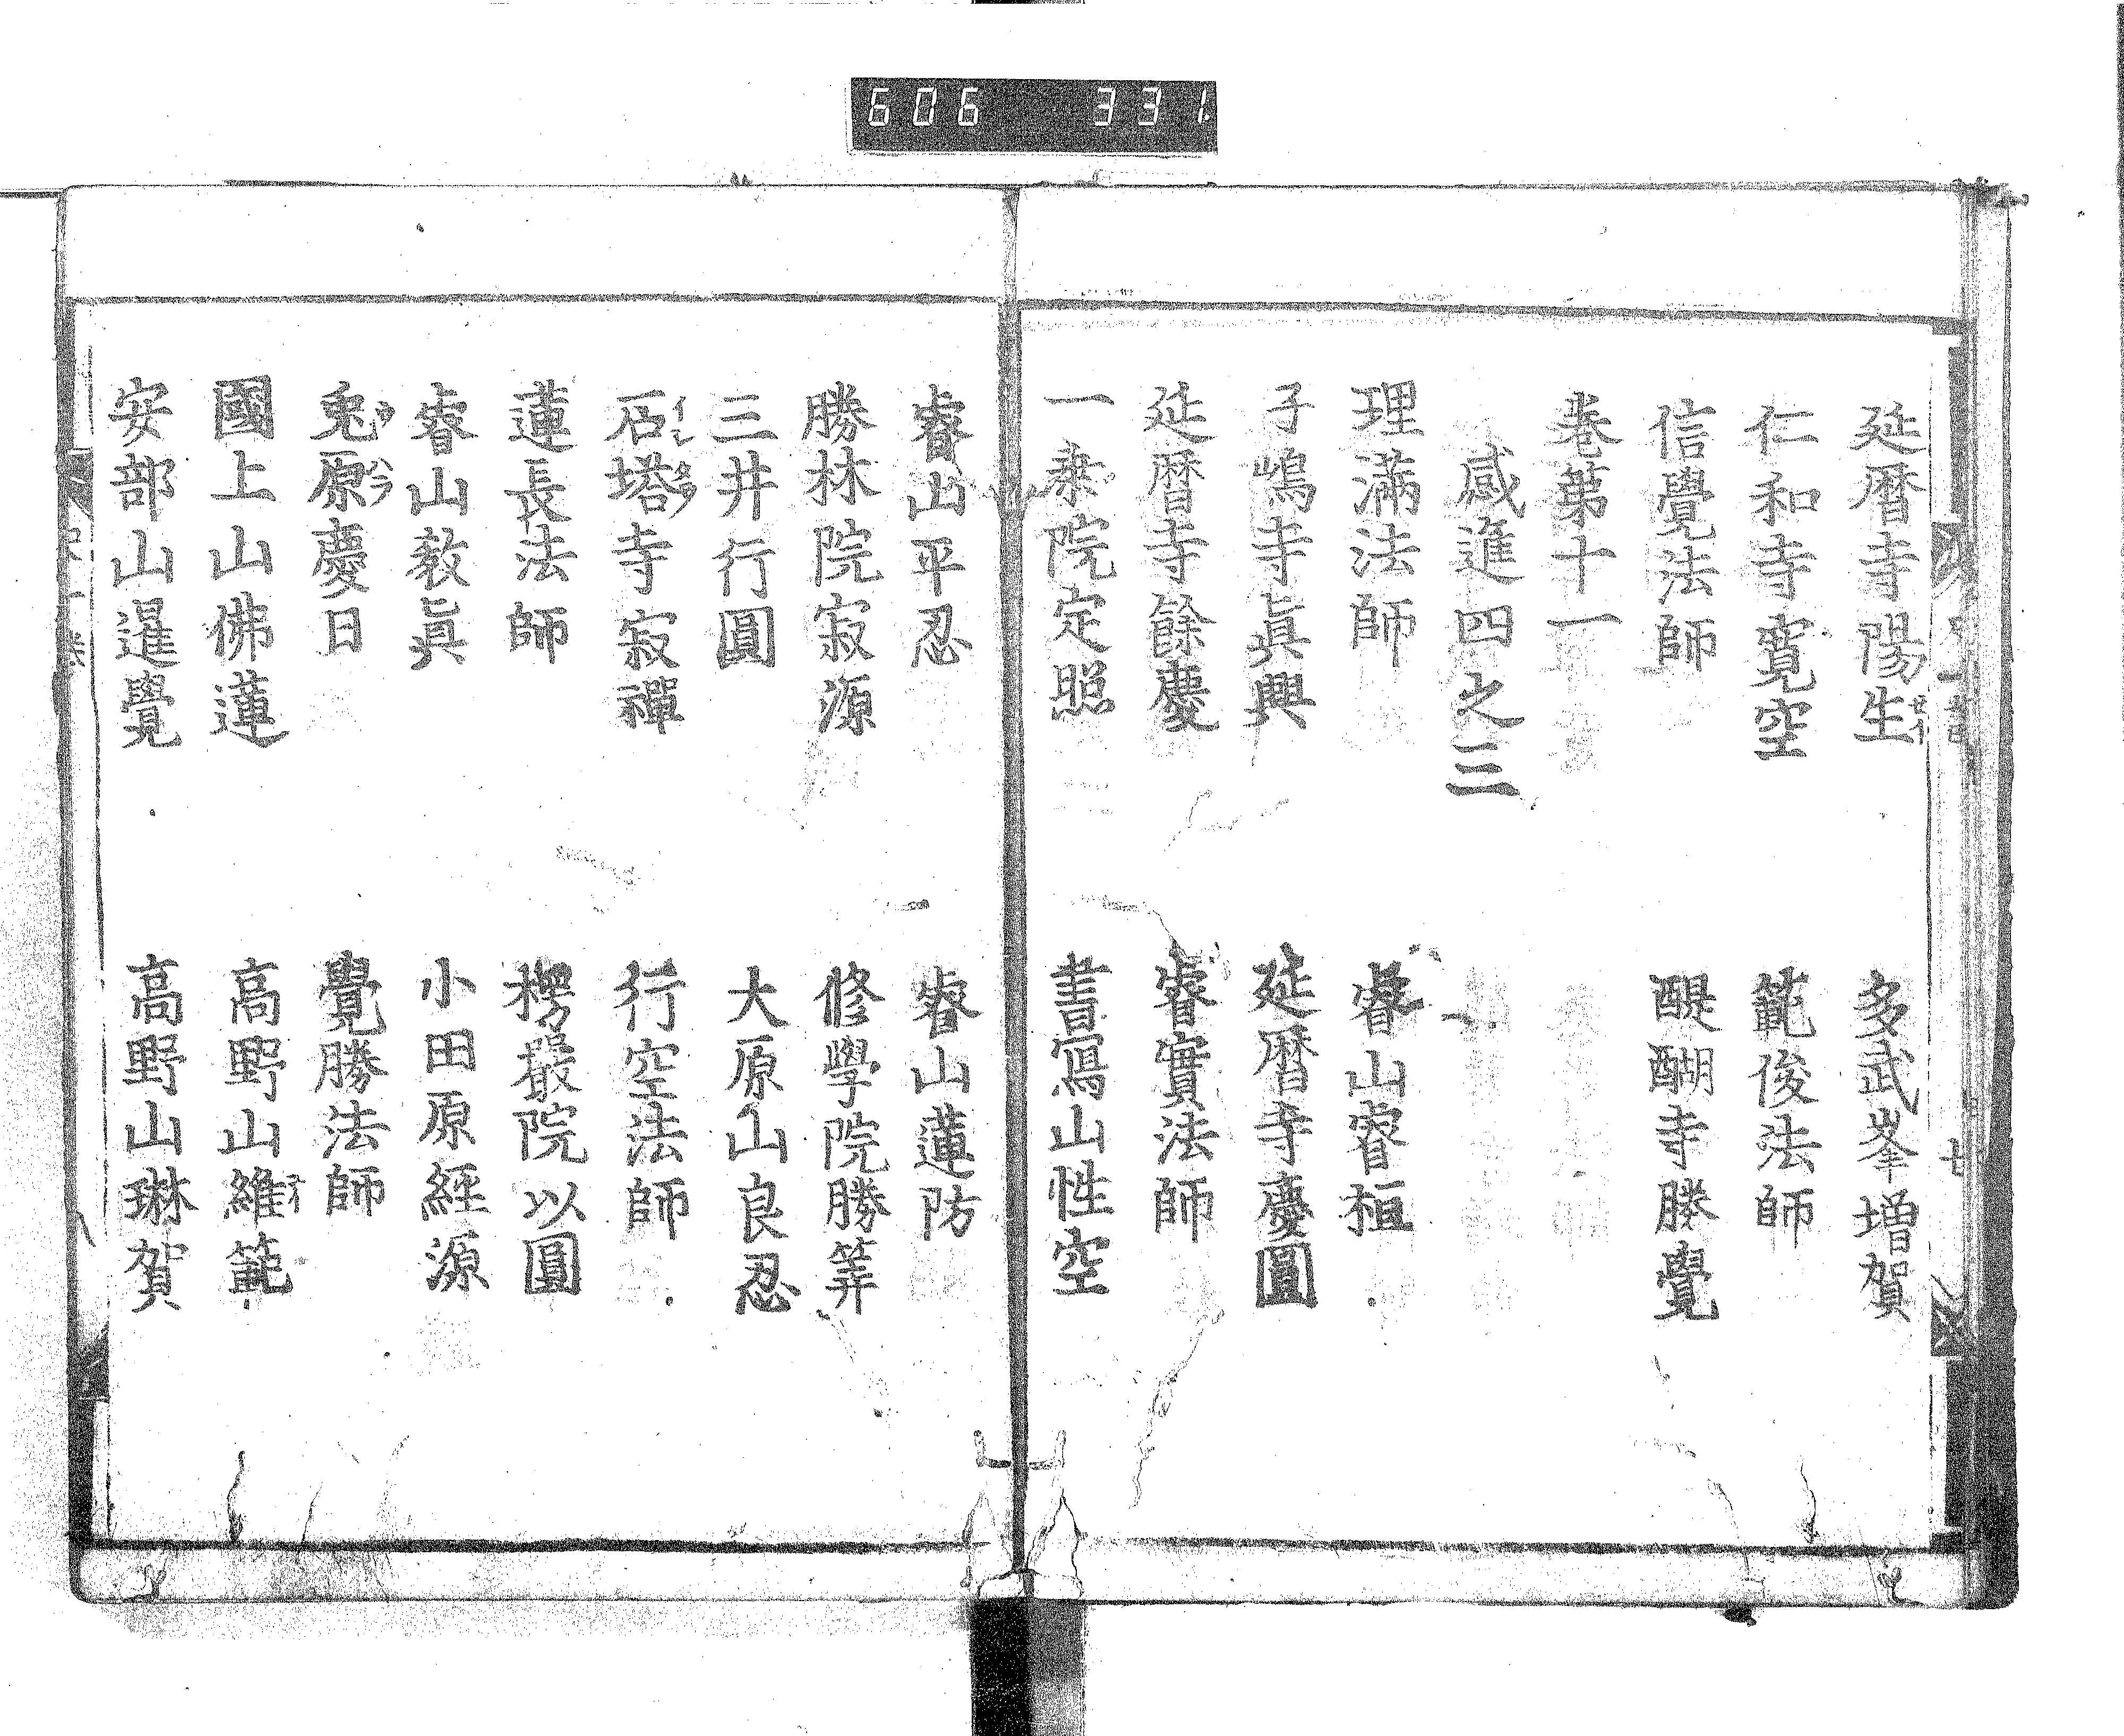 606 331
延曆寺陽生
多武峯增賀
仁和寺寬空
範俊法師
信覺法師
醍醐寺勝覺
卷第十一
感進四之三
理滿法師
睿山睿桓
子嶋寺眞興
延曆寺慶圓
延曆寺餘慶
睿實法師
一乘院定照
書寫山性空
睿山平忍
睿山蓮防
勝林院寂源
修學院勝筭
三井行圓
大原山良忍
石塔寺寂禪
行空法師
蓮長法師
楞嚴院以圓
睿山敎眞
小田原經源
兎原慶日
覺勝法師
國上山佛蓮
高野山維範
安部山暹覺
高野山琳賀